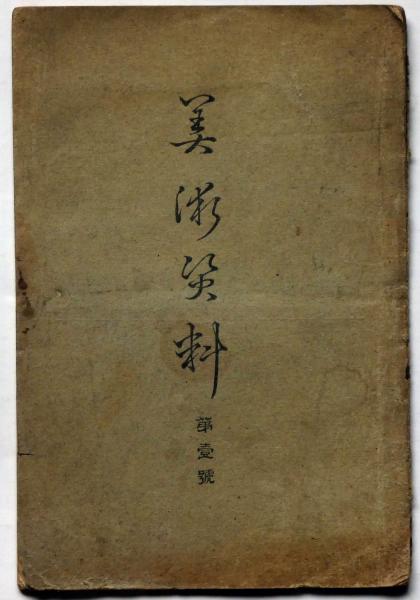 美術資料
第壹號